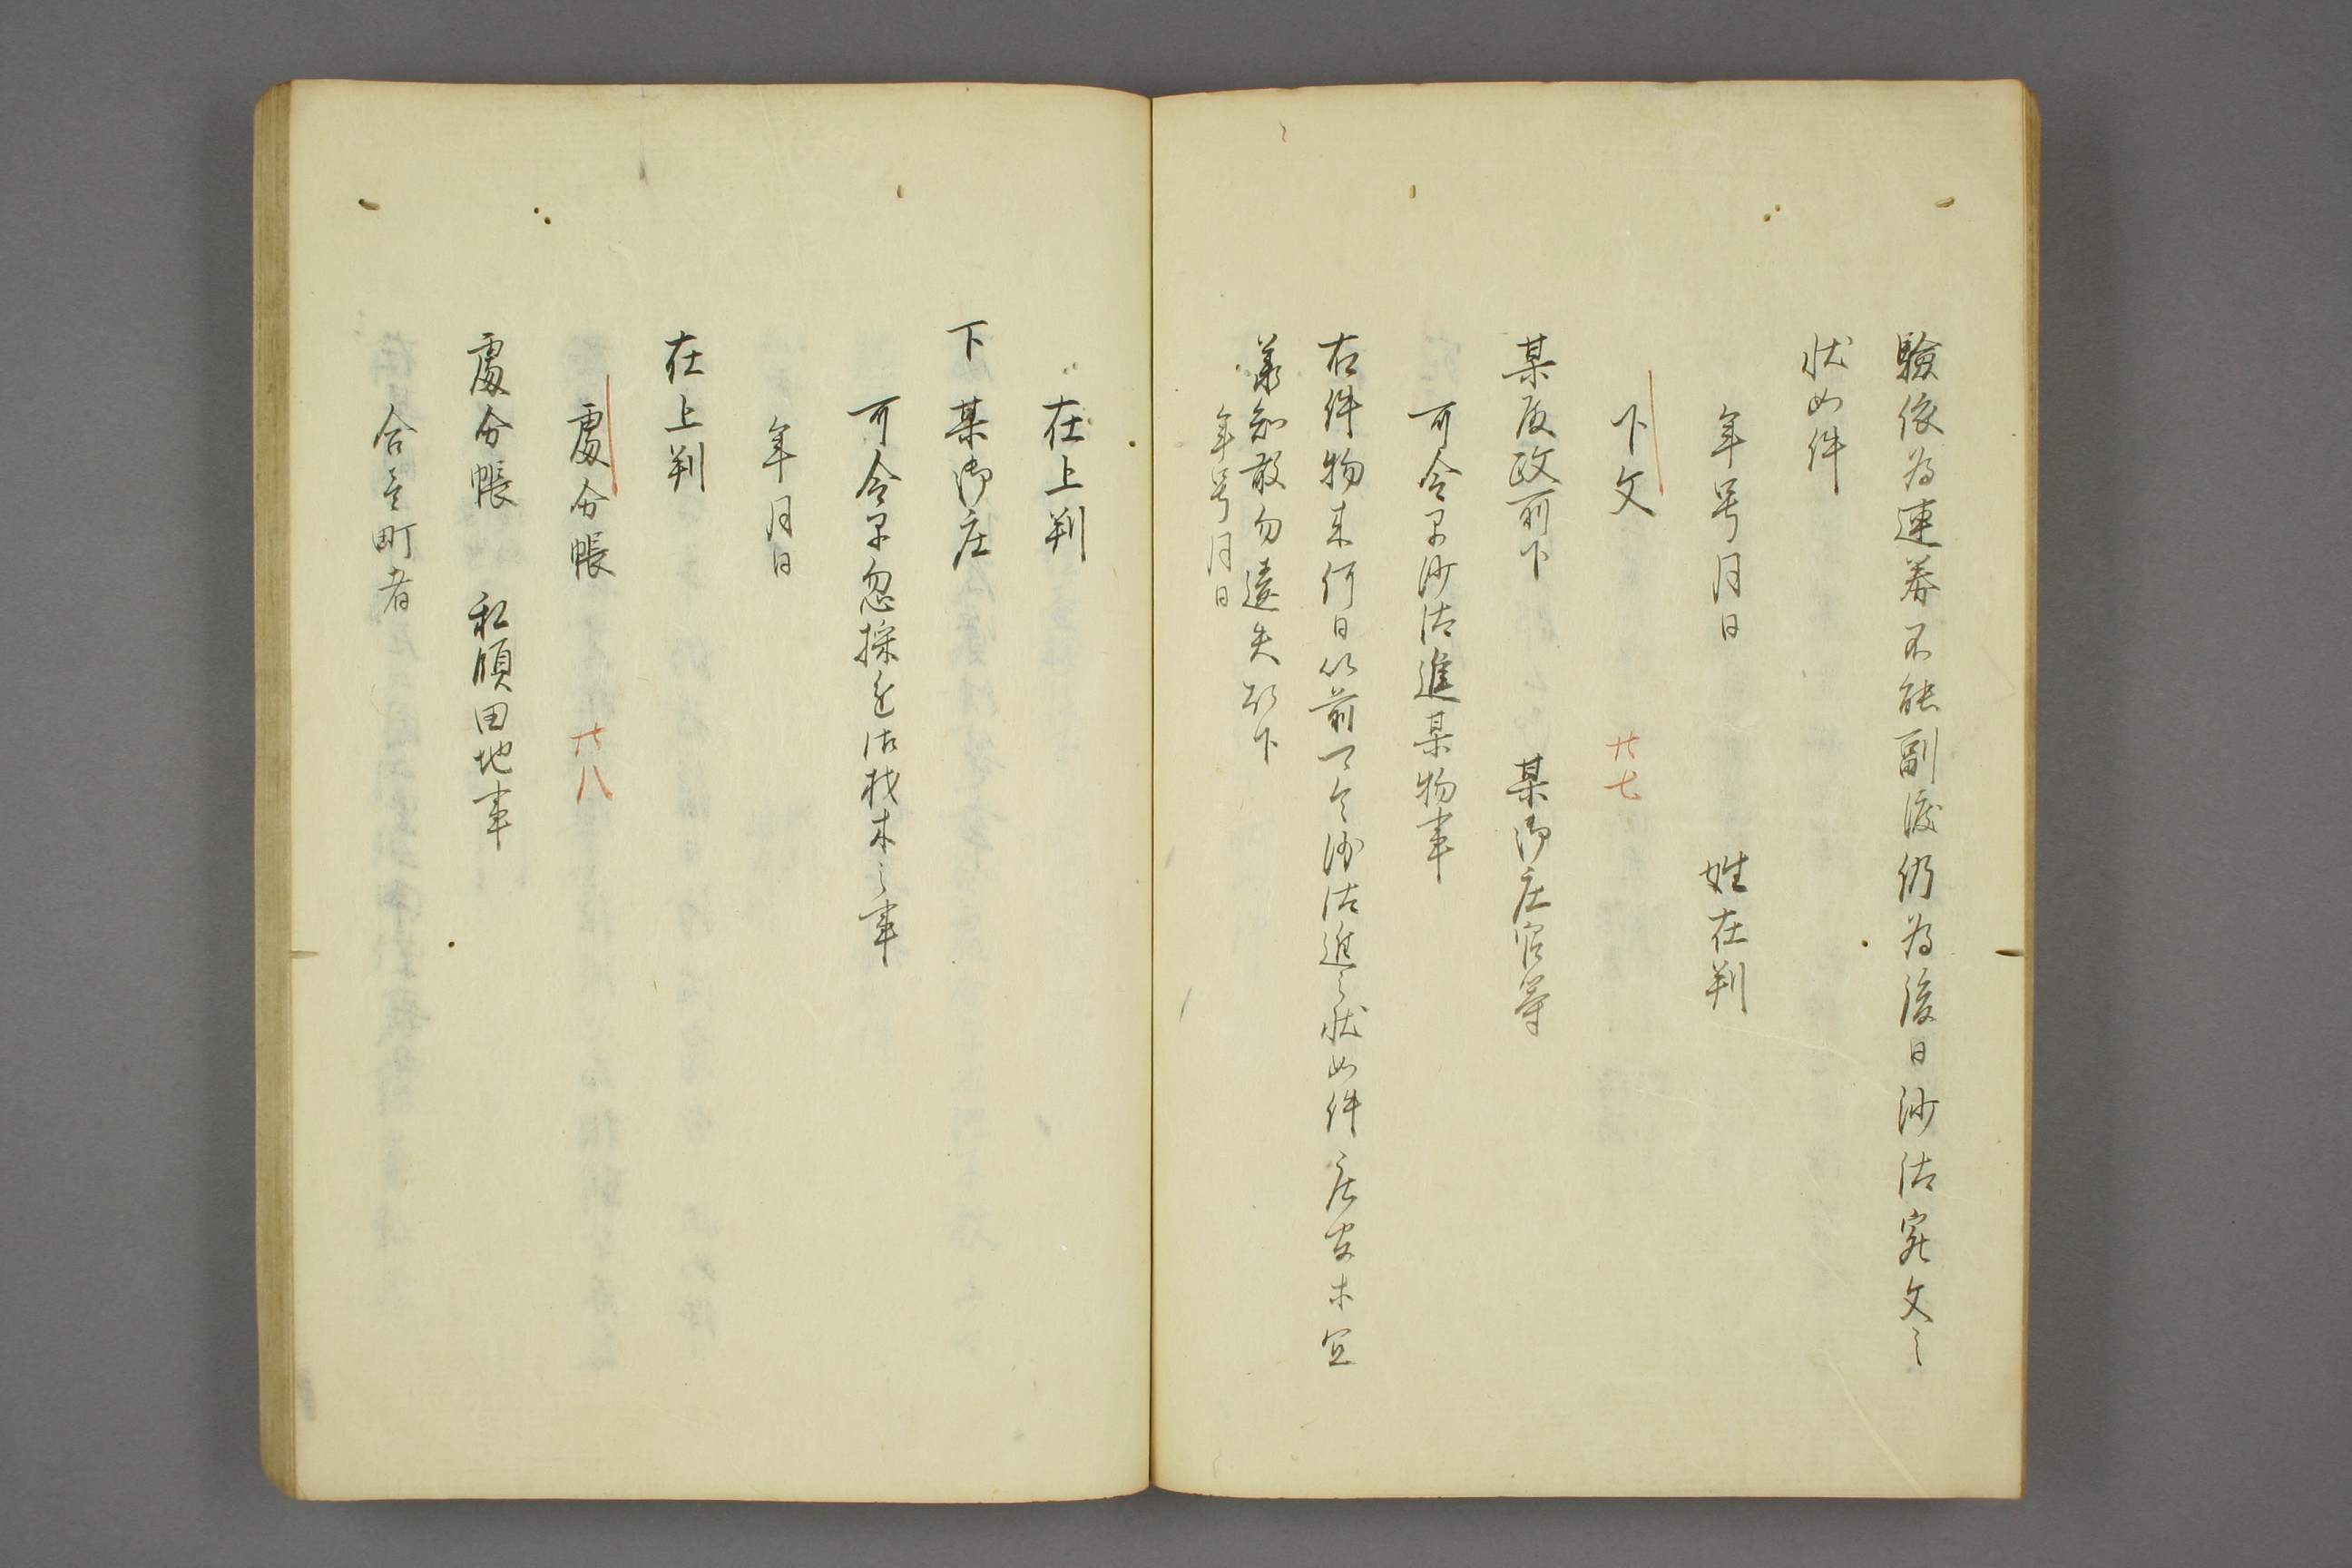 驗依為連券不能副渡仍為後日沙法定文之
状如件
年号月日　姓在判
下文　廿七
某殿政所下　某御庄官等
可令早沙法進某物事
右件物来何日以前可令沙法進之状如件庄官木宜
承知敢勿遠失故下
年号月日
在上判
下某御庄
可令早忽採進材木之事
年月日
在上判
處分帳　廿八
處分帳　私領田地事
合壱町者